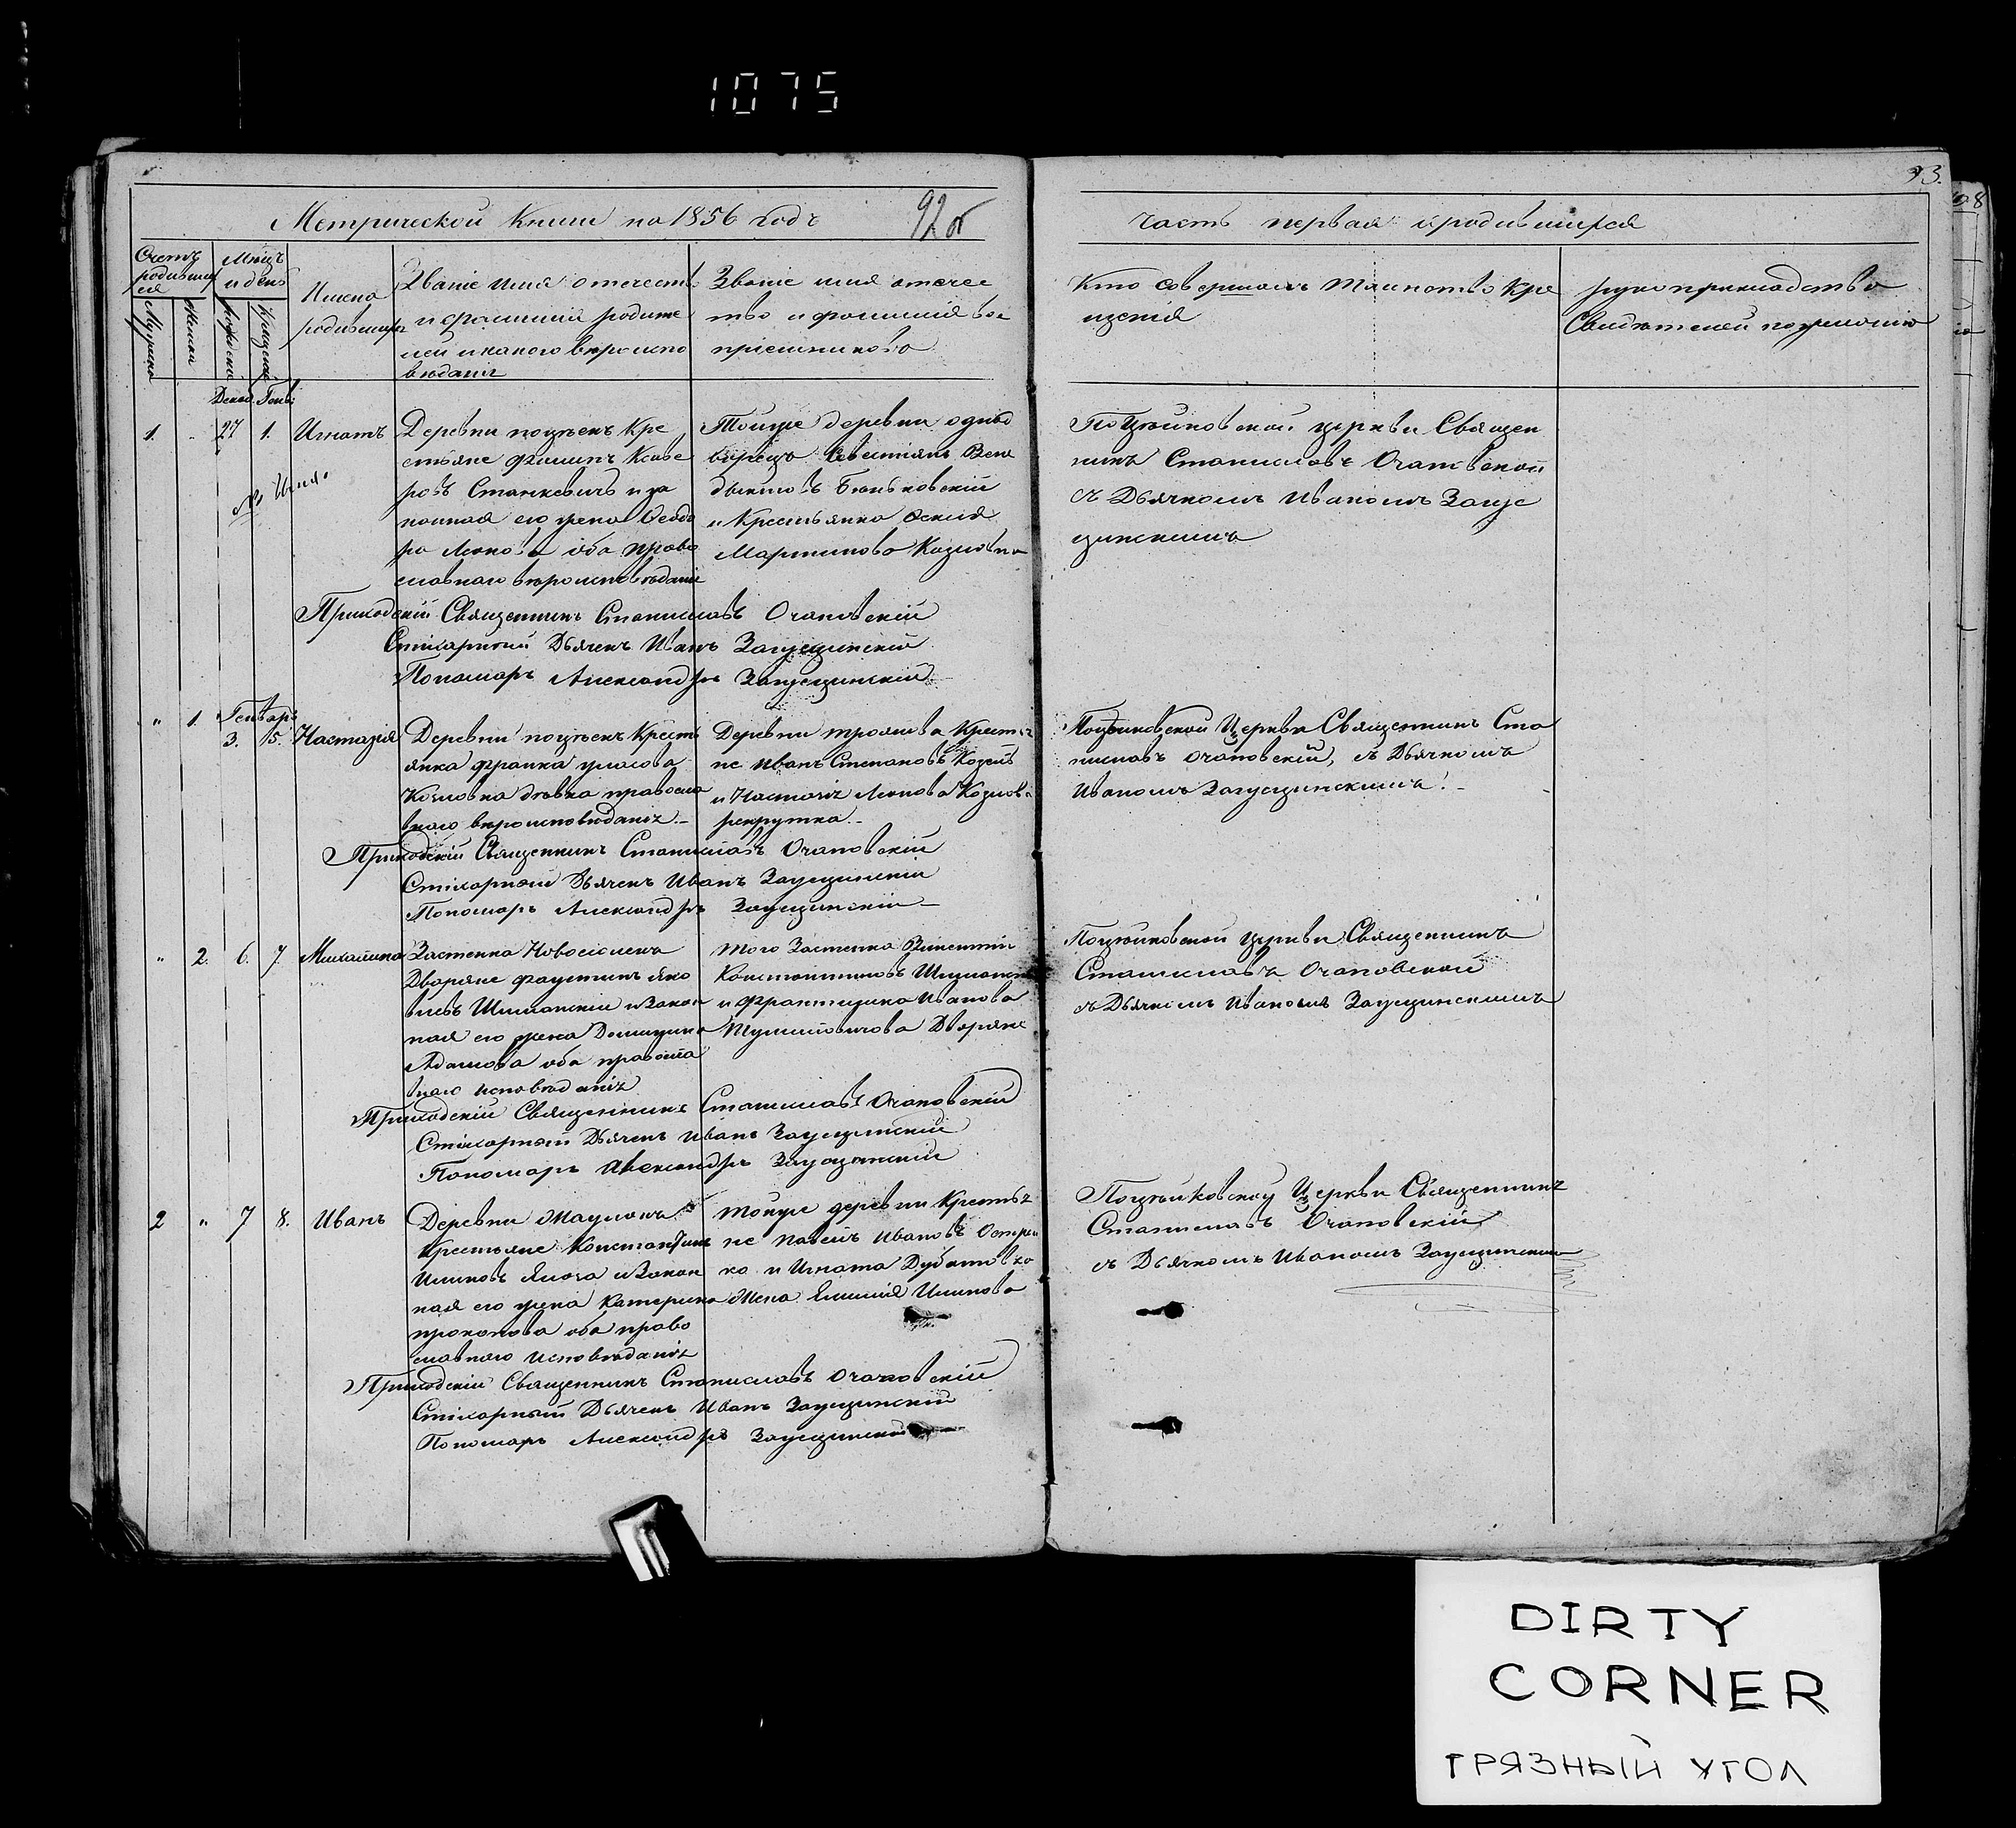 1075
93.
Метрической Книги на 1856 годъ 92об
часть первая о родившихся
Счетъ родившихся
Мѣцъ и день
Имена родившихся
Званіе имя отечест.
и фамилія родите
лей и какого вѣроиспо
вѣданія
Званіе имя отечес
тво и фамилія вос
пріемниковъ
Кто совершалъ таинство Кре
щенія
рукоприкладство
Свидѣтелей по желанію
Мужеска
Женска
рожденія
Крещенія
Декаб. Генв:
1. " 27 1. Игнатъ
Деревни поцѣекъ Кре
стьяне Филипъ Ксаве
ровъ Станкевичъ и за
конная его жена Ѳеодо
ра Леонова оба право
славнаго вѣроисповѣданія
Тойже деревни однод
ворецъ
Бѣньковскій
и Крестьянка
Мартинова Козловна
Поцѣйковской церкви Священ
никъ Станиславъ Очаповской
съ Дьячкомъ Иваномъ Загус
щинскимъ
Приходскій Священникъ Станиславъ Очаповскій
Стіхарный Дьячекъ Иванъ Загусщинскій
Пономарь Александръ Загусщинскій
" 1. Генварь 3. 15. Настазія
Деревни поцѣекъ Кресть
янка франка
Козловна дѣвка правосла
внаго вѣроисповѣданія.
Деревни троянова Крестья
не Иванъ Степановъ Козелъ
и Настазія Леонова Козлова
рекрутка.
Поцѣйковской Церкви Священникъ Ста
ниславъ Очаповскій, съ Дьячкомъ
Иваномъ Загусщинскимъ!
Приходскій Священникъ Станиславъ Очаповскій
Стіхарный Дьячекъ Иванъ Загусщинскій
Пономарь Александръ Загусщинскій
" 2. 6. 7. Михалина
Застенка Новоселокъ
Дворяне фаустинъ Яко
влевъ Шиманскій и закон
ная его жена Доминика
Адамова оба правосла
внаго исповѣданія
того Застенка Викентій
Константиновъ
и Францишка Иванова
Дворяне
Поцѣйковской церкви Священникъ
Станиславъ Очаповской
съ Дьячкомъ Иваномъ Загусщинскимъ
Приходскій Священникъ Станиславъ Очаповскій
Стіхарный Дьячекъ Иванъ Загусщинскій
Пономарь Александръ Загусщинскій
2 " 7 8. Иванъ
Деревни
Крестьяне Константинъ
и Закон
ная его жена Катерина
прокопова оба право
славнаго исповѣданія
тойже деревни Крестья
не Павелъ Ивановъ
ко и Игната
Жена
Поцѣйковской Церкви Священникъ
Станиславъ Очаповскій
съ Дьячкомъ Иваномъ Загусщинскимъ
Приходскій Священникъ Станиславъ Очаповскій
Стіхарный Дьячекъ Иванъ Загусщинскій
Пономарь Александръ Загусщинскій
DIRTY
CORNER
ГРЯЗНЫЙ УГОЛ